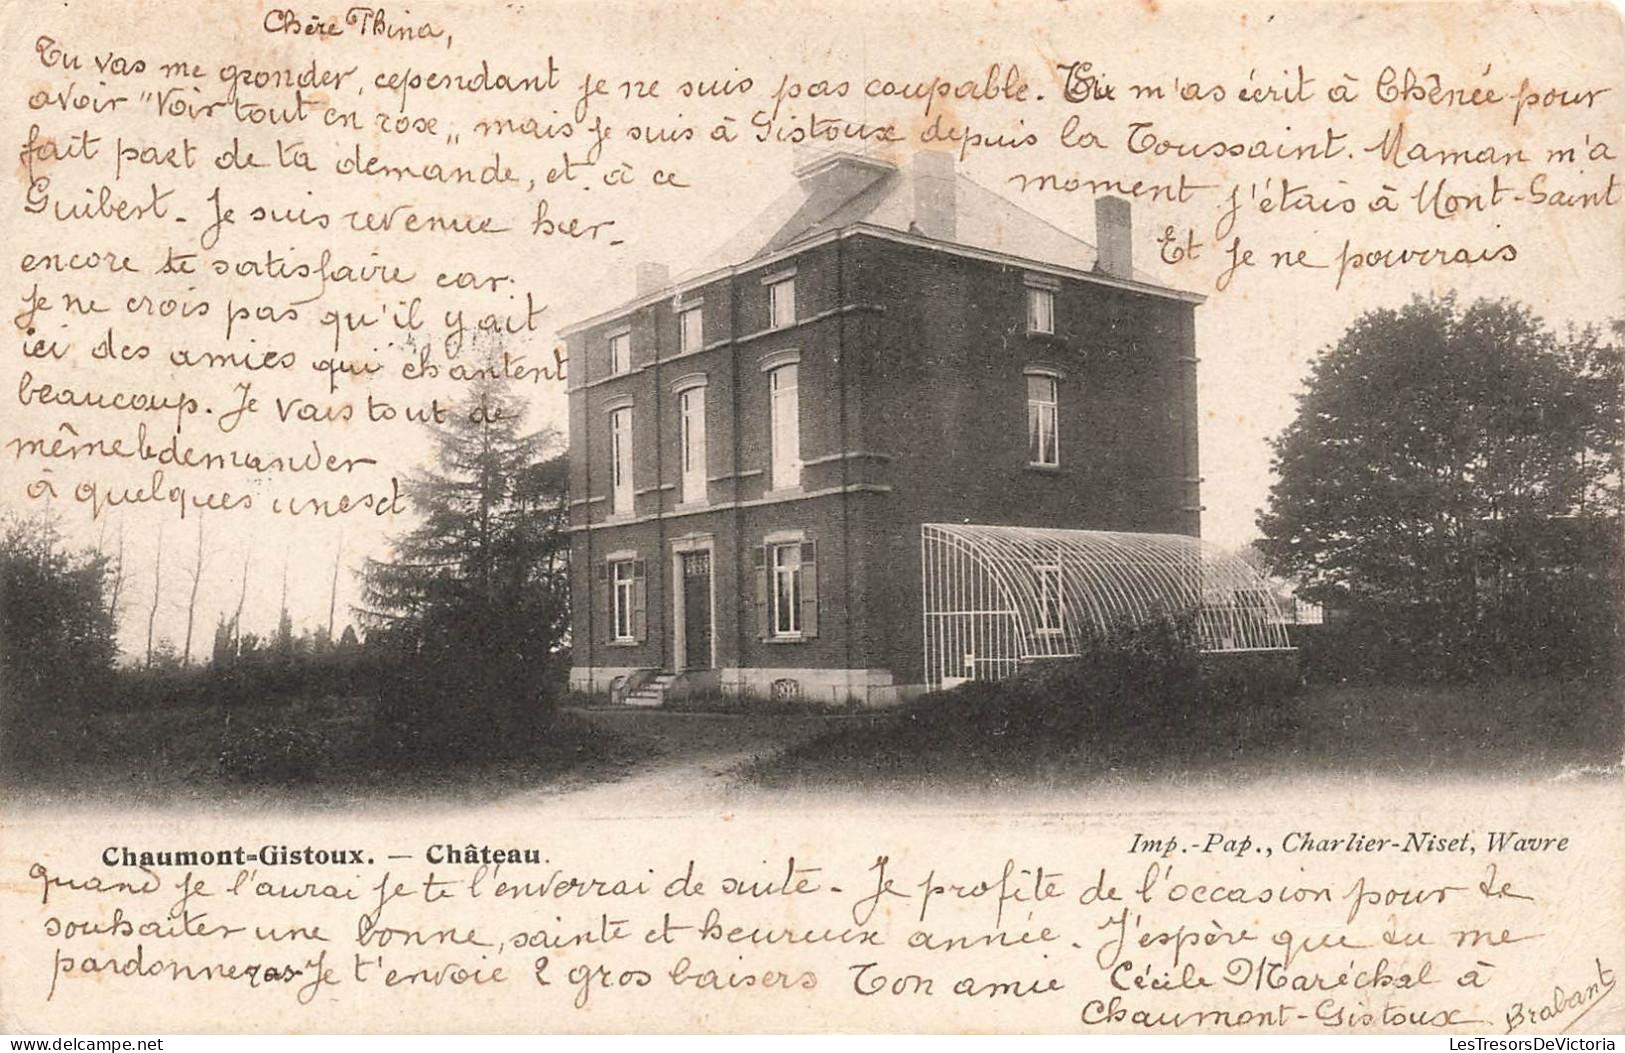 Chère Thina,
Tu vas me gronder, cependant je ne suis pas coupable. Tu m'as écrit à Chênée pour
avoir "Voir tout en rose" mais je suis à Gistoux depuis la Toussaint. Maman m'a
fait part de ta demande, et à ce moment j'étais à Mont-Saint
Guibert. Je suis revenue hier. Et je ne pourrais
encore te satisfaire car.
je ne crois pas qu'il y ait
ici des amies qui chantent
beaucoup. Je vais tout de
même le demander
à quelques unes et
Chaumont-Gistoux. — Château.
Imp.-Pap., Charlier-Niset, Wavre
quand je l'aurai je te l'enverrai de suite. Je profite de l'occasion pour te
souhaiter une bonne, sainte et heureuse année. J'espère que tu me
pardonneras Je t'envoie 2 gros baisers Ton amie Cécile Maréchal à
Chaumont-Gistoux. Brabant
LesTresorsDeVictoria